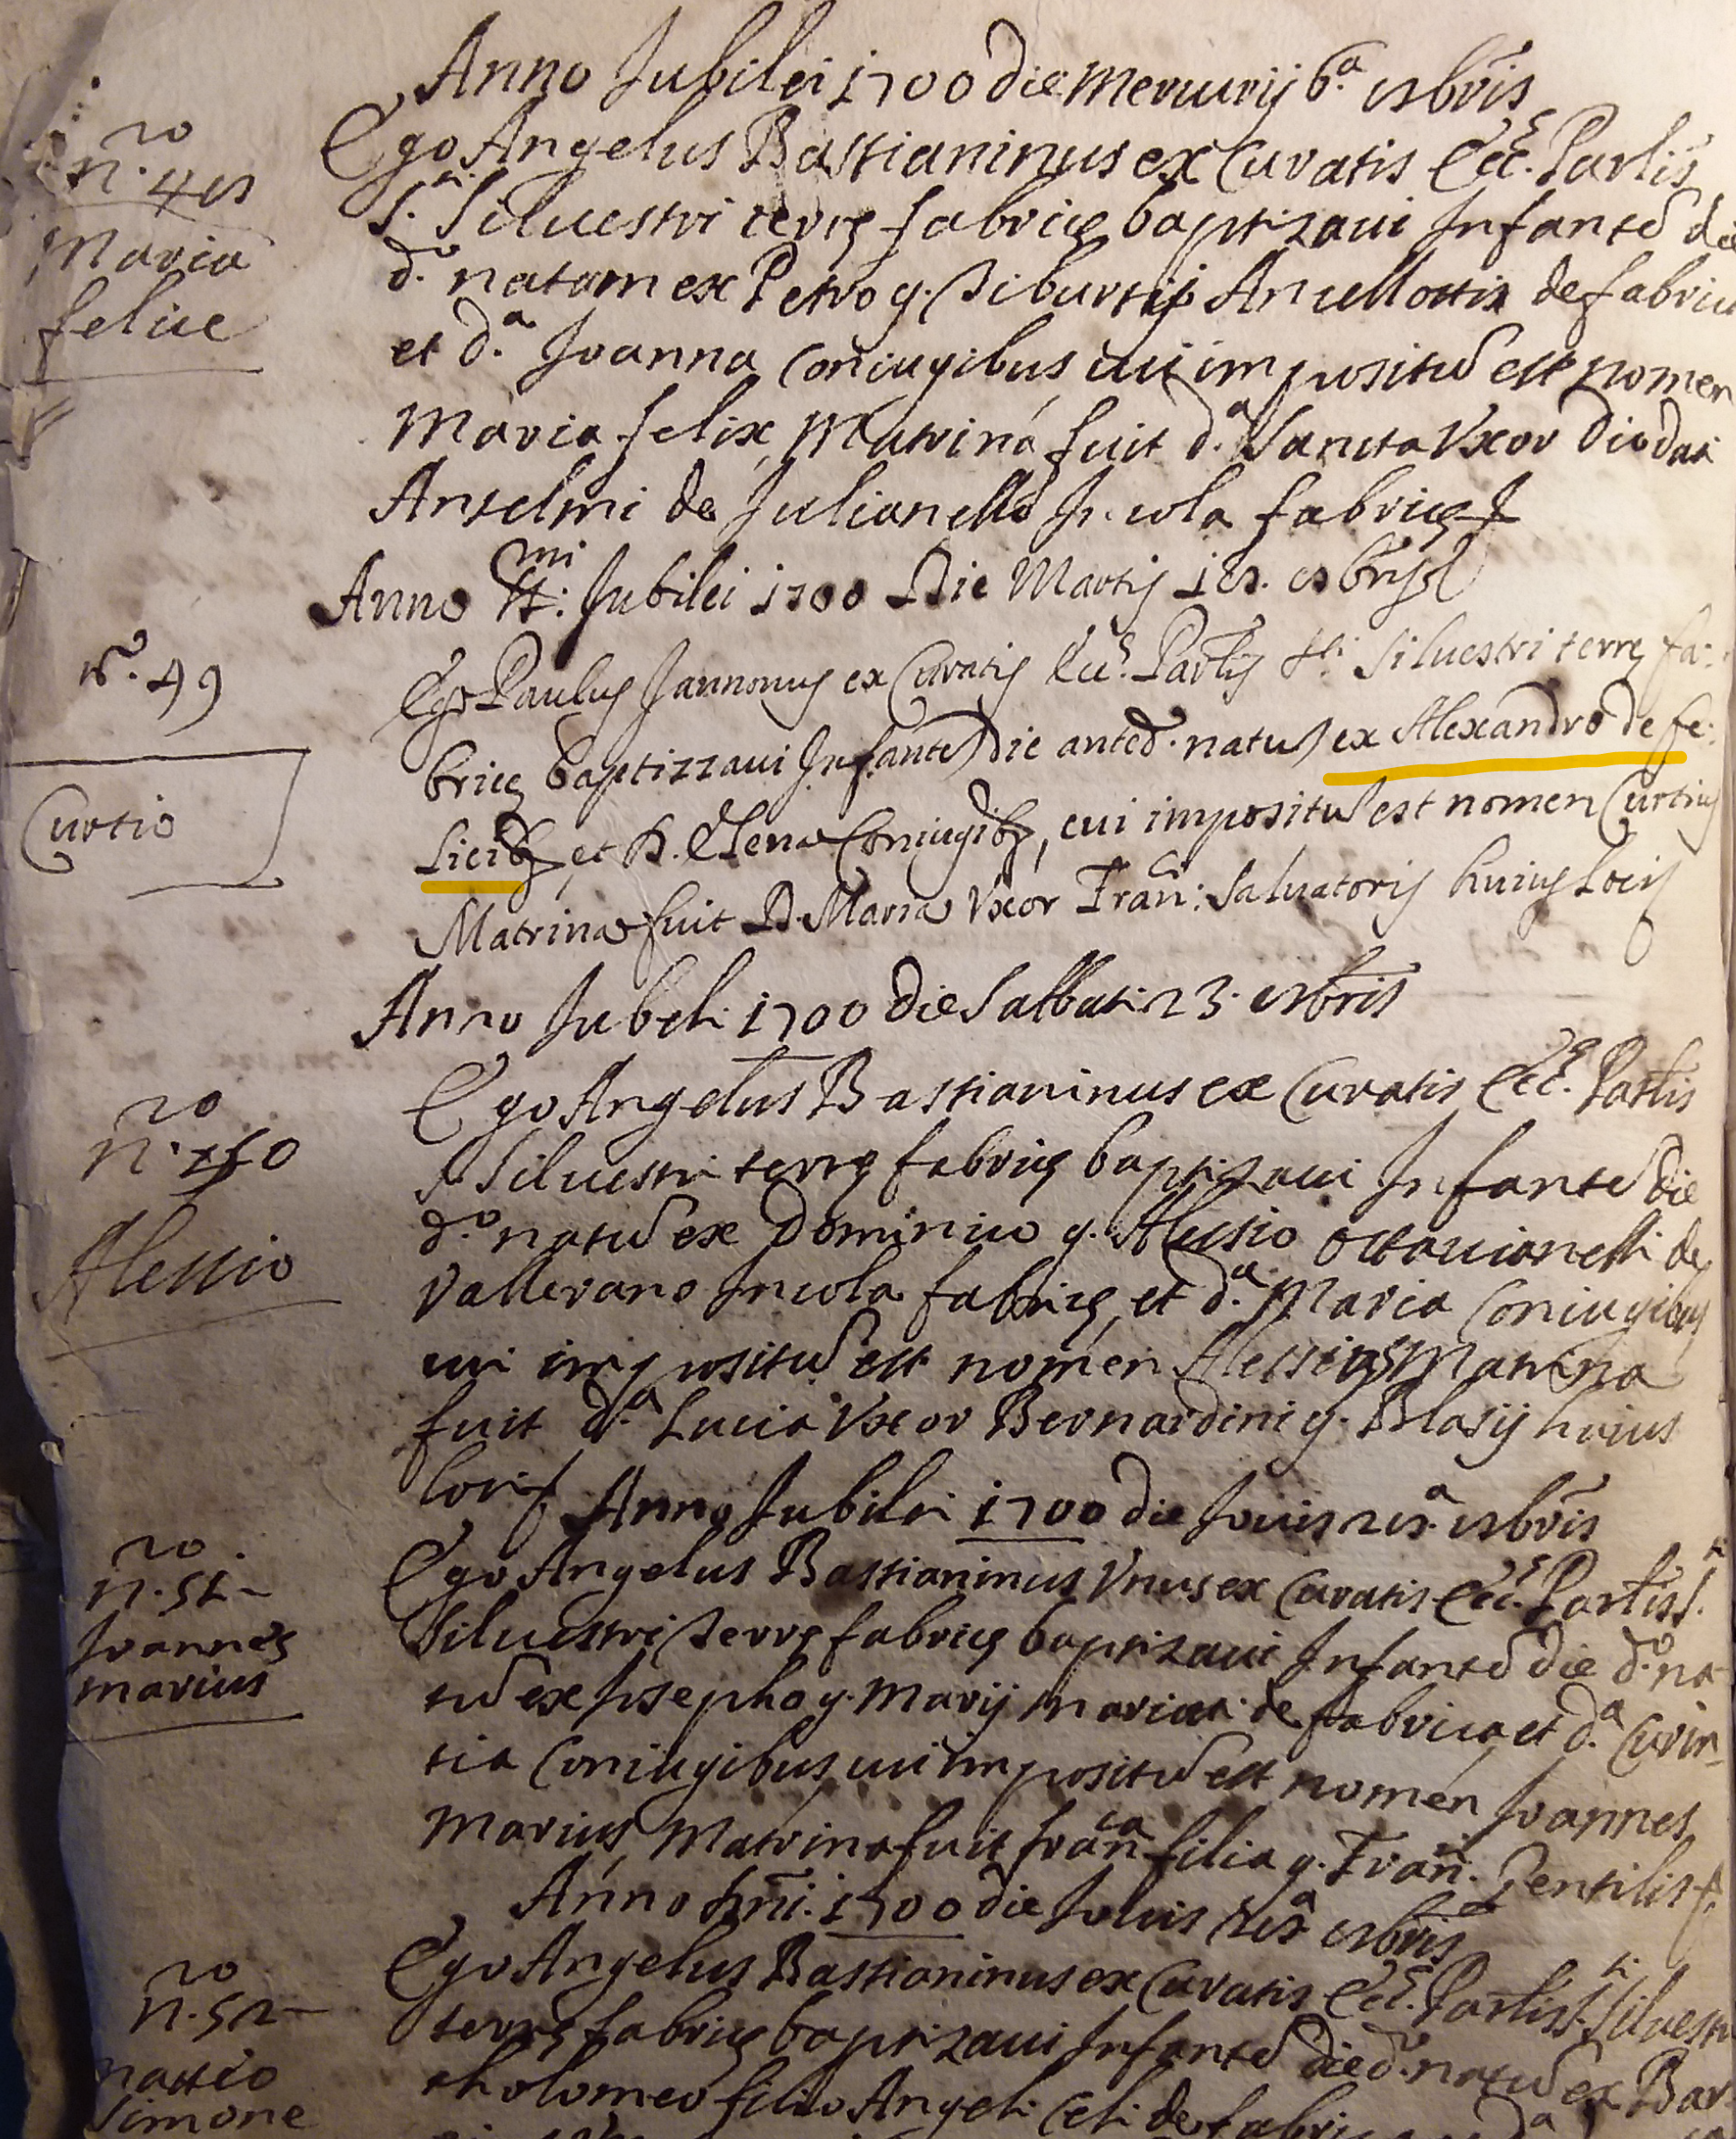 Anno Jubilei 1700 die Mercurij 6.a 9bris
n.ro 48
Maria
felice
Ego Angelus Bastianinus ex Curatis Ecc.e Par.lis
S. Siluestri terrę fabricę baptizaui Infante die
d.o natam ex Petro q. Tiburtij Ancellottis de fabrica
et d.a Joanna Coniugibus, cui impositu est nomen
Maria felix, Matrina fuit d.a Sancta Vxor Diodati
Anselmi de Julianello Incola fabricę
Anno SS.mi Jubilei 1700 Die Martij 9bris
n.o 49
Curtio
Ego Paulus Jannonus ex Curatis Ecc.e Par.lis S.ti Siluestri terrę fa:
bricę baptizzaui Infante die anted. natu ex Alexandro de fe:
licib; et D. Elena Coniugib;, cui impositu est nomen Curtius
Matrina fuit D. Maria Vxor Fran.ci: Saluatoris huius Loci
Anno Jubilei 1700 die Sabbati 23. 9bris
n.ro 50
Alessio
Ego Angelus Bastianinus ex Curatis Ecc.e Par.lis
S. Siluestri terrę fabricę baptizaui Infante die
d.o natu ex Dominico q. Alessio Ottauianelli de
Vallerano Incola fabricę, et d.a Maria Coniugibus
cui impositu est nomen Alessius Matrina
fuit d.a Lucia Vxor Bernardini q. Blasij huius
loci
Anno Jubilei 1700 die Jouis 9bris
n.ro 51
Joannes
marius
Ego Angelus Bastianinus Vnus ex Curatis Ecc.e Par.lis S.
Siluestri Terrę fabricę baptizaui Infante die d.o na-
tu ex Josepho q. Marij de fabrica et d.a Curin-
tia Coniugibus cui impositu est nomen Joannes
Marius, Matrina fuit Fran.ca filia q. Fran.ci Gentilis
Anno 1700 die Jouis 9bris
n.ro 52
mattio
Simone
Ego Angelus Bastianinus ex Curatis Ecc.e Par.lis S.ti Siluestri
terrę fabricę baptizaui Infante die d.o natu ex Bar-
tholomeo filio Angeli Celi de fabrica